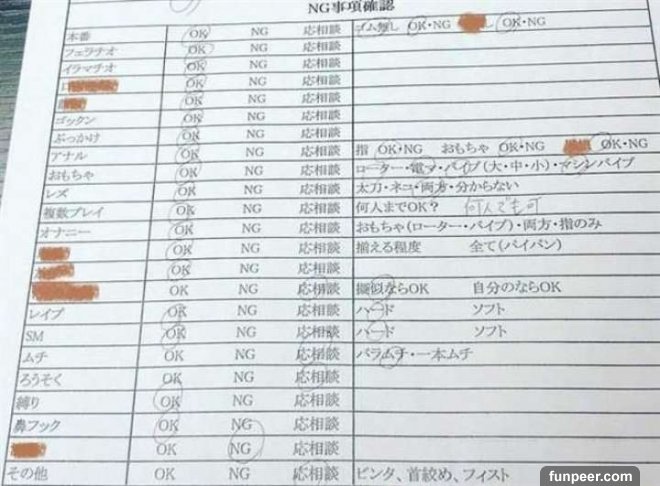 NG事項確認
本番 OK NG 応相談 ゴム無し OK・NG OK・NG
フェラチオ OK NG 応相談
イラマチオ OK NG 応相談
OK NG 応相談
OK NG 応相談
ゴックン OK NG 応相談
ぶっかけ OK NG 応相談
アナル OK NG 応相談 指 OK・NG おもちゃ OK・NG OK・NG
おもちゃ OK NG 応相談 ローター・電マ・バイブ(大・中・小)・マシンバイブ
レズ OK NG 応相談 太刀・ネコ・両方・分からない
複数プレイ OK NG 応相談 何人までOK? 何人でも可
オナニー OK NG 応相談 おもちゃ(ローター・バイブ)・両方・指のみ
OK NG 応相談 揃える程度 全て(パイパン)
OK NG 応相談
OK NG 応相談 擬似ならOK 自分のならOK
レイプ OK NG 応相談 ハード ソフト
SM OK NG 応相談 ハード ソフト
ムチ OK NG 応相談 バラムチ・一本ムチ
ろうそく OK NG 応相談
縛り OK NG 応相談
鼻フック OK NG 応相談
OK NG 応相談
その他 OK NG 応相談 ビンタ、首絞め、フィスト
funpeer.com